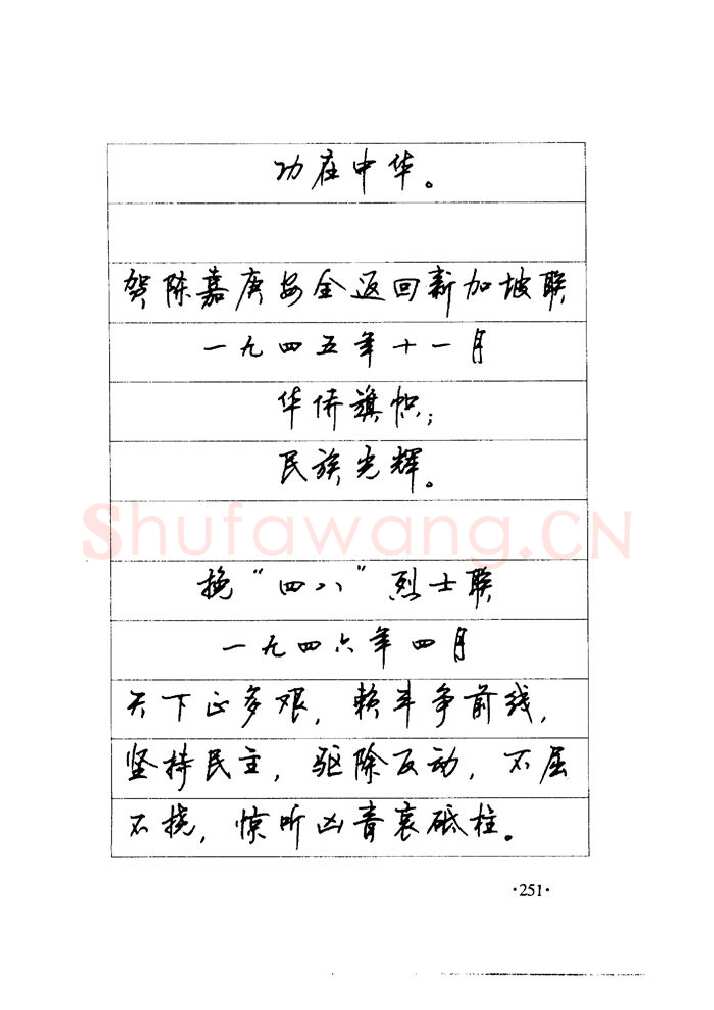 功在中华。
贺陈嘉庚安全返回新加坡联
一九四五年十一月
华侨旗帜；
民族光辉。
Shufawang.CN
挽“四八”烈士联
一九四六年四月
天下正多艰，赖斗争前线，
坚持民主，驱除反动，不屈
不挠，惊听凶音哀砥柱。
·251·